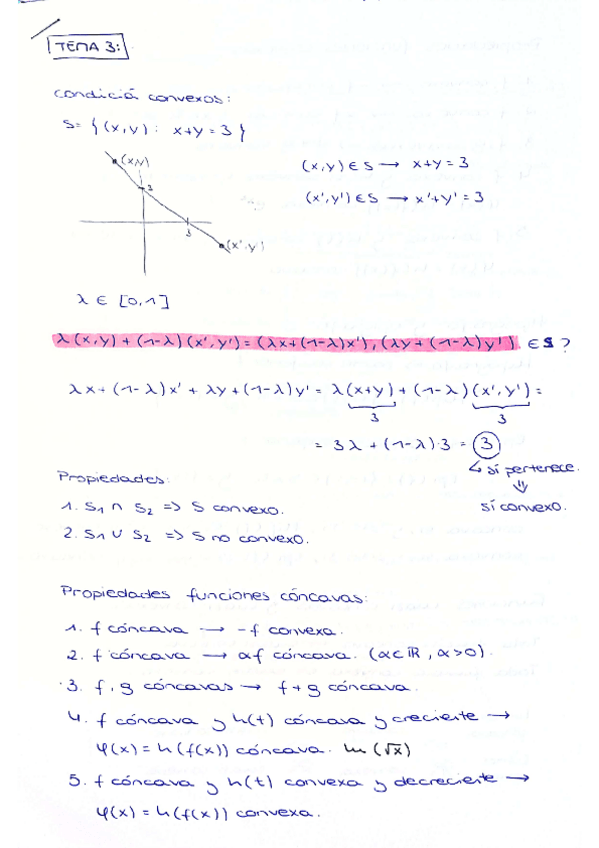 TEMA 3:
condició convexos:
S= { (x,y) : x+y = 3 }
(x,y)
(x,y) ∈ S → x+y = 3
3
(x',y') ∈ S → x'+y' = 3
3
(x',y')
λ ∈ [0,1]
λ(x,y) + (1-λ)(x',y') = (λx+(1-λ)x'), (λy+(1-λ)y') ∈ S ?
λx+(1-λ)x' + λy+(1-λ)y' = λ(x+y) + (1-λ)(x',y') =
3 3
= 3λ + (1-λ)·3 = 3
↳ sí pertenece.
⇓
sí convexo.
Propiedades:
1. S1 ∩ S2 => S convexo.
2. S1 ∪ S2 => S no convexo.
Propiedades funciones cóncavas:
1. f cóncava → -f convexa.
2. f cóncava → αf cóncava. (α∈ℝ, α>0).
3. f, g cóncavas → f+g cóncava.
4. f cóncava y h(t) cóncava y creciente →
φ(x) = h(f(x)) cóncava. ln(√x)
5. f cóncava y h(t) convexa y decreciente →
φ(x) = h(f(x)) convexa.